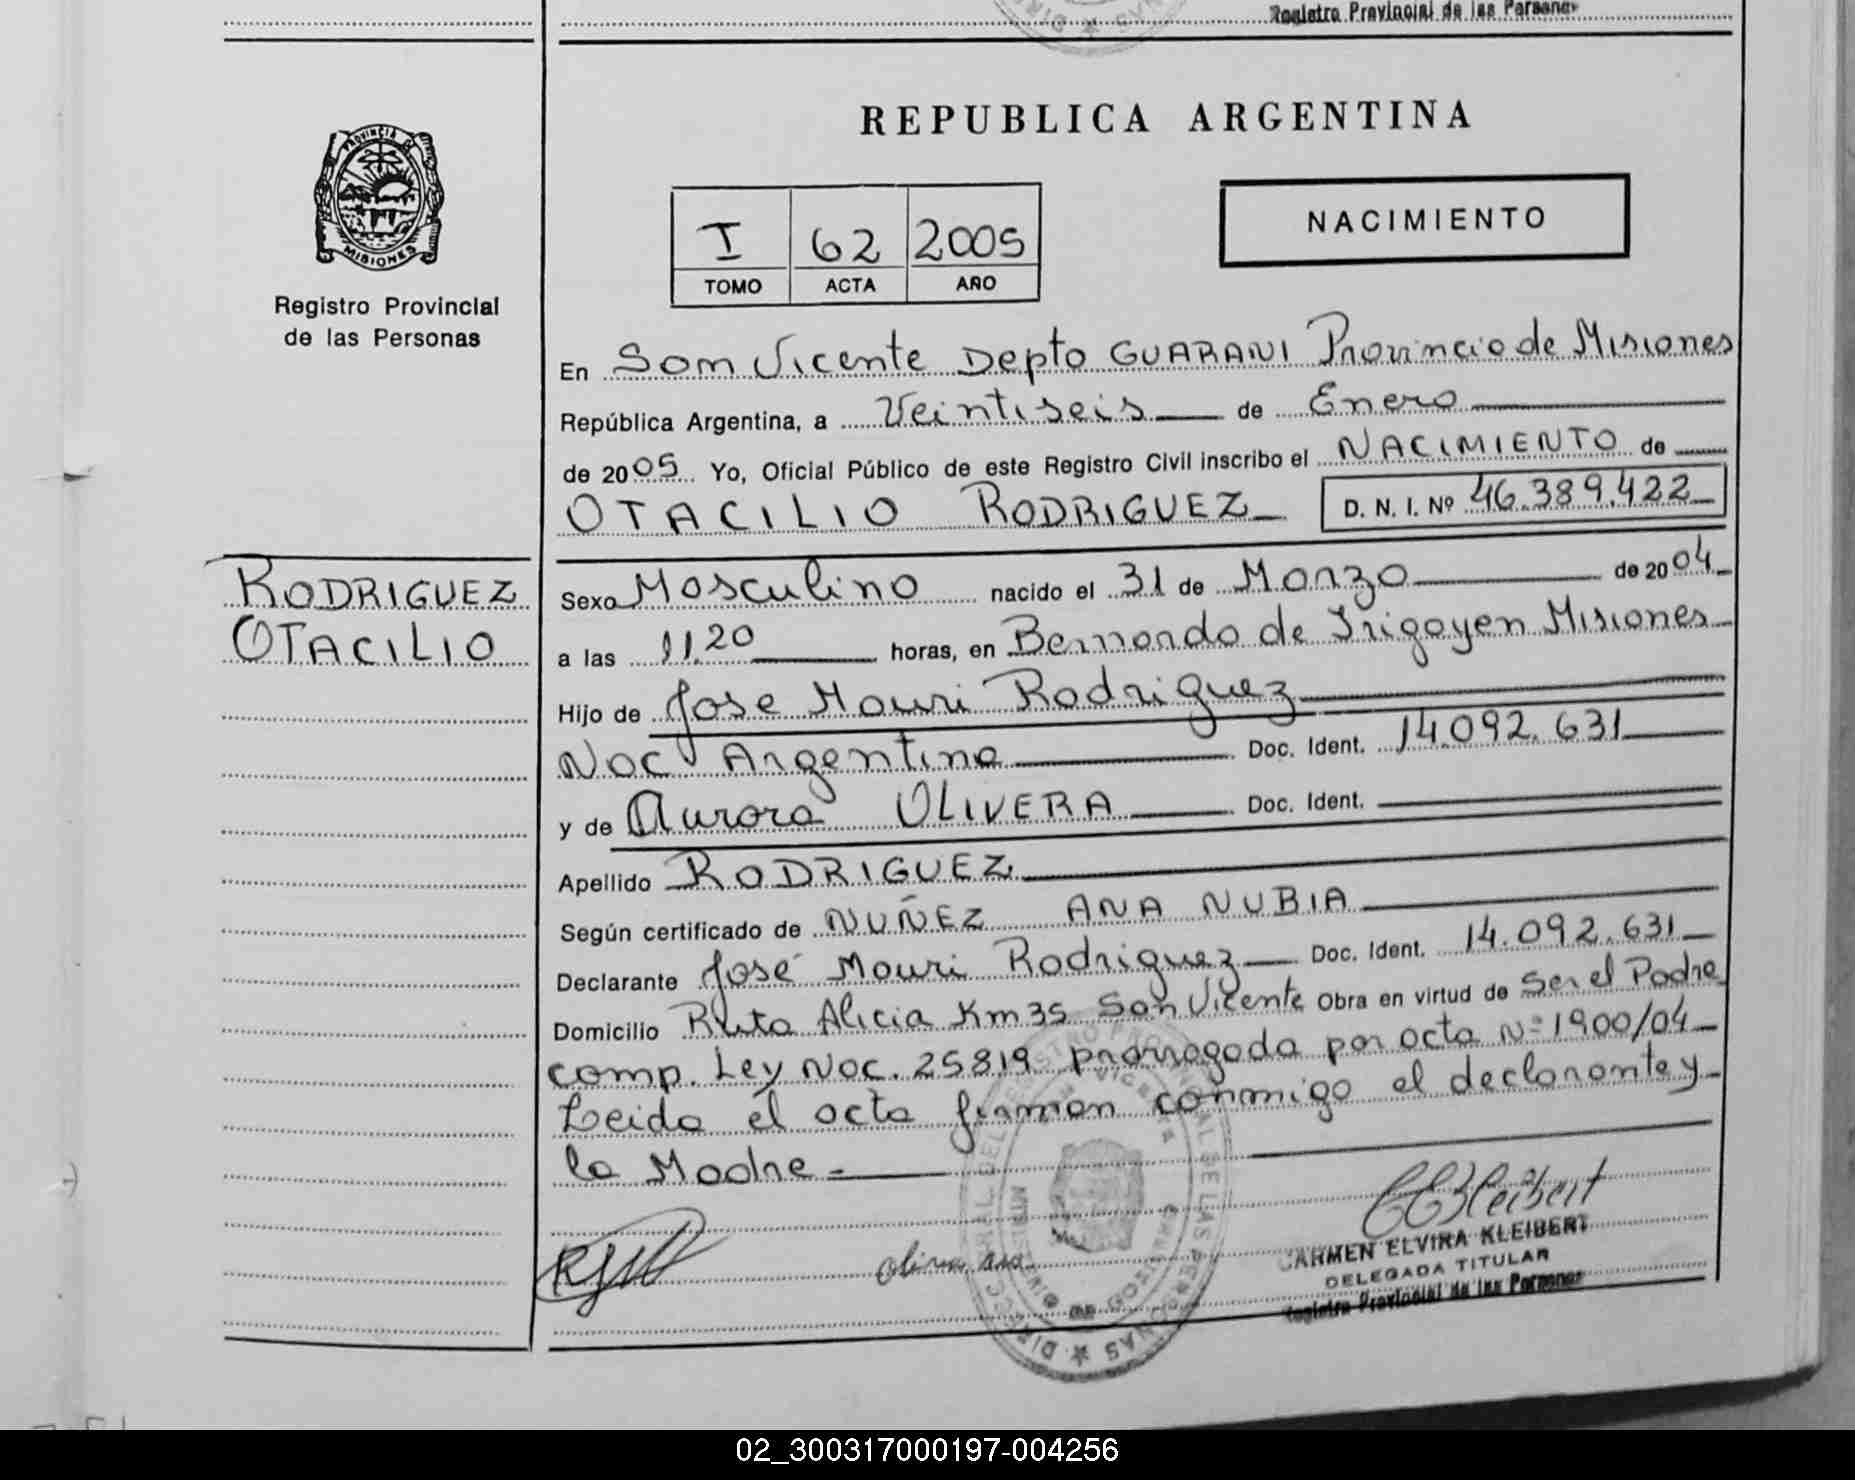 Registro Provincial de las Personas
REPUBLICA ARGENTINA
PROVINCIA DE
MISIONES
Registro Provincial
de las Personas
I 62 2005
TOMO ACTA AÑO
NACIMIENTO
En San Vicente Depto GUARANI Provincia de Misiones
República Argentina, a Veintiseis de Enero
de 2005 Yo, Oficial Público de este Registro Civil inscribo el NACIMIENTO de
OTACILIO RODRIGUEZ D. N. I. Nº 46.389.422
RODRIGUEZ
OTACILIO
Sexo Masculino nacido el 31 de Marzo de 2004
a las 11.20 horas, en Bernardo de Irigoyen Misiones
Hijo de Jose Mauri Rodriguez
Nac Argentina Doc. Ident. 14.092.631
y de Aurora OLIVERA Doc. Ident.
Apellido RODRIGUEZ
Según certificado de NUÑEZ ANA NUBIA
Declarante José Mauri Rodriguez Doc. Ident. 14.092.631
Domicilio Ruta Alicia Km 35 San Vicente Obra en virtud de Ser el Padre
comp. Ley Nac. 25819 prorrogada por acta Nº 1900/04
Leida el acta firman conmigo el declarante y
la Madre
CARMEN ELVIRA KLEIBERT
DELEGADA TITULAR
Registro Provincial de las Personas
02_300317000197-004256